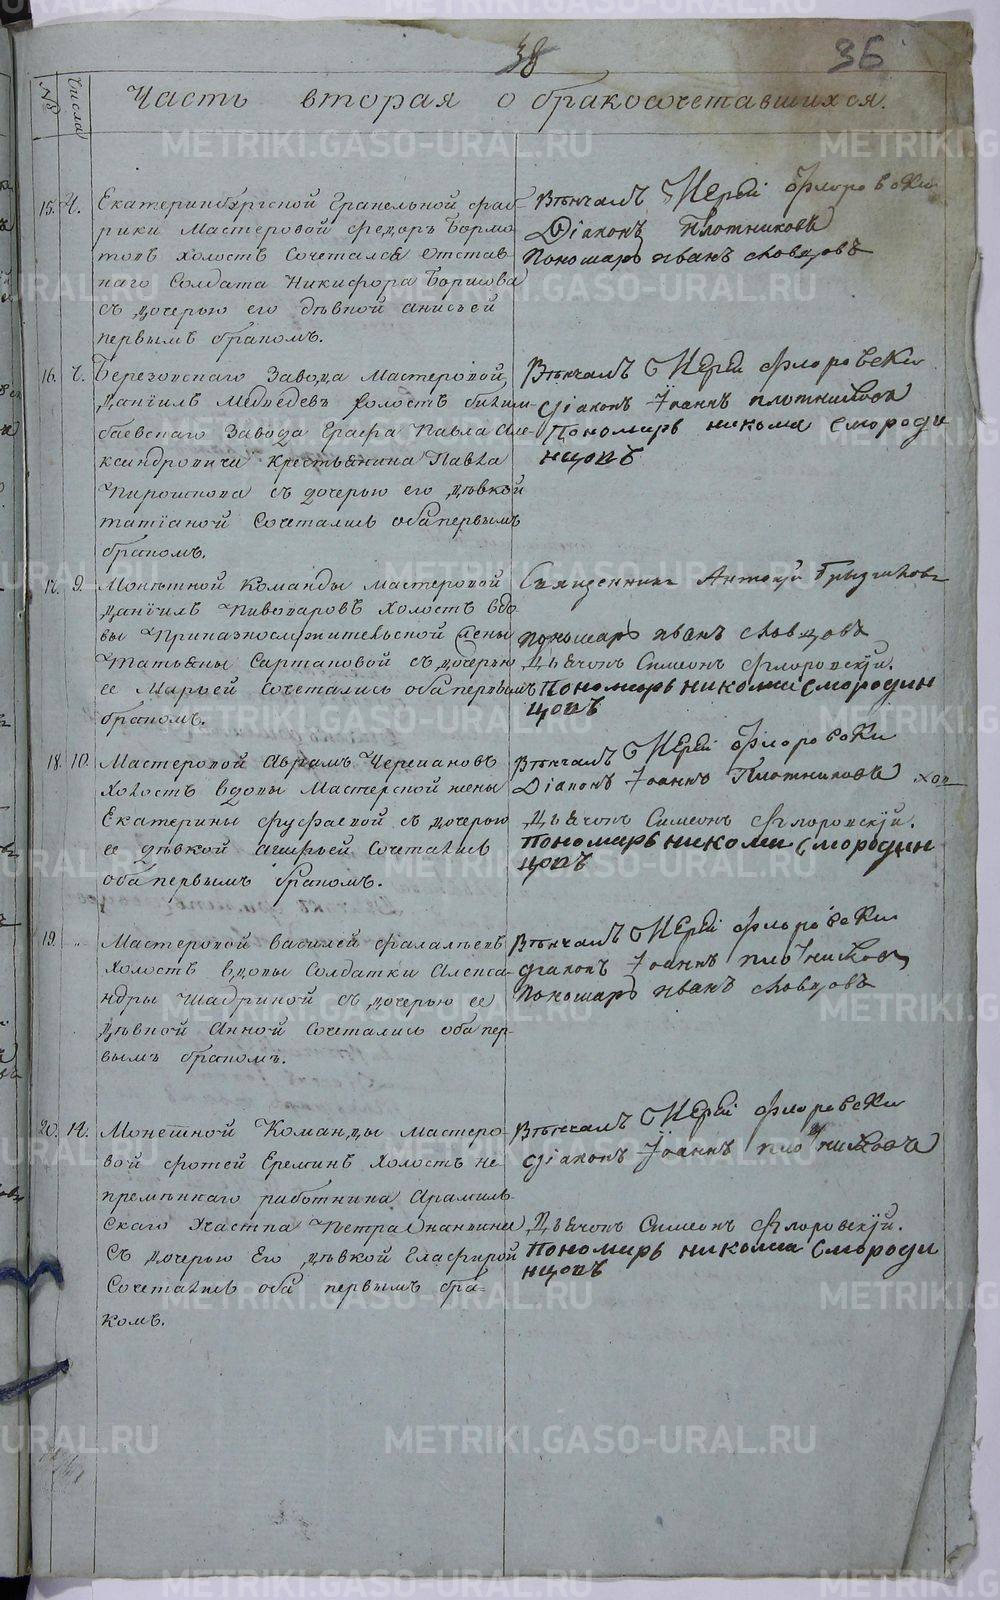 38
36
№
Числа
Часть вторая о бракосочетавшихся.
15. 4. Екатеринбургской Гранельной фаб-
рики Мастеровой Федоръ Бормо
товъ холостъ Сочетался Отстав
наго Солдата Никифора Борисова
съ дочерью его дѣвкой анисьей
первымъ бракомъ.
Вѣнчалъ Иерей Флоровски
Діаконъ Плотниковъ
Пономарь Иванъ Ловцовъ
16. Березовскаго Завода Мастеровой
Данїилъ Медведевъ холостъ билим-
баевскаго Завода Графа Павла Але
ксандровича Крестьянина Павла
Пирошкова съ дочерью его дѣвкой
татїаной Сочетались оба первымъ
бракомъ.
Вѣнчалъ Иерей Флоровски
діаконъ Іоаннъ плотниковъ
Пономарь никома Смороди
нцовъ
17. 9. Монетной Команды мастеровой
данїилъ Пивоваровъ холостъ вдо
вы Приказнослужительской жены
Татьяны Сартаковой съ дочерью
ее Марьей Сочетались оба первымъ
бракомъ.
Священникъ Антоній
пономарь Иванъ Ловцовъ
Дьячокъ Симеонъ Флоровскїй.
Пономарь никома Смородин
цовъ
18. 10. Мастеровой Аврамъ Черепановъ
Холостъ вдовы Мастерской жены
Екатерины съ дочерью
ее дѣвкой Сочетались
оба первымъ бракомъ.
Вѣнчалъ Иерей Флоровски
Діаконъ Іоаннъ Плотниковъ
Дьячокъ Симеонъ Флоровскїй.
Пономарь никома Смородин
цовъ
19. „ Мастеровой василей фалалѣевъ
холостъ вдовы Солдатки Алекса-
ндры Шадриной съ дочерью ее
дѣвкой Анной Сочетались оба пер-
вымъ бракомъ.
Вѣнчалъ Иерей Флоровски
діаконъ Іоаннъ плотниковъ
пономарь Иванъ Ловцовъ
20. 14. Монетной Команды Мастеро-
вой фотей Ереминъ холостъ не
премѣннаго работника Арамиль
скаго Участка Петра
Съ дочерью Его дѣвкой Глафирой
Сочетались оба первымъ бра-
комъ.
Вѣнчалъ Иерей Флоровски
діаконъ Іоаннъ плотниковъ
Дьячокъ Симеонъ Флоровскїй.
Пономарь никома Смороди
нцовъ
METRIKI.GASO-URAL.RU